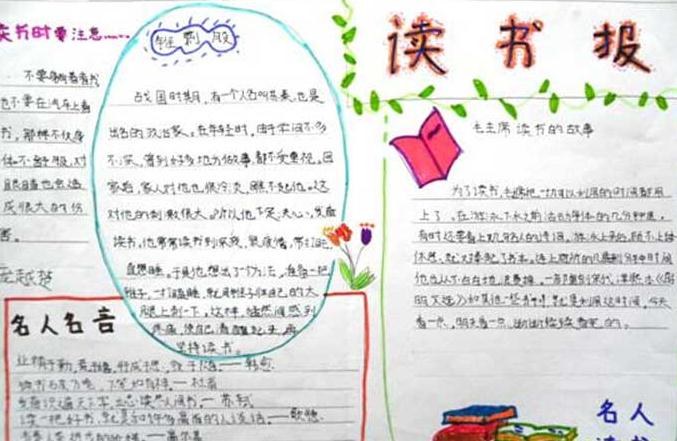 读书时要注意……
不要躺着看书
也不要在汽车上看
书，那样不仅身
体不舒服，对
眼睛也会造
成很大的伤
害。
锥刺股
战国时期，有一个人名叫苏秦，也是
出名的政治家。在年轻时，由于学问不多
不深，曾到好多地方做事，都不受重视。回
家后，家人对他也很冷淡，瞧不起他。这
对他的刺激很大。所以他下定决心，发奋
读书，他常常读书到深夜，很疲倦，常打盹，
直想睡。于是他想出了个方法，准备一把
锥子，一打瞌睡，就用锥子往自己的大
腿上刺一下，这样，猛然间感到
疼痛，使自己清醒起来，再
坚持读书。
名人名言
业精于勤，荒于嬉，行成于思，毁于随。——韩愈
读书破万卷，下笔如有神。——杜甫
发奋识遍天下字，立志读尽人间书。——苏轼
读一切好书，就是和许多高尚的人谈话。——歌德
读书报
毛主席读书的故事
为了读书，毛主席把一切可以利用的时间都用
上了。在游泳下水之前活动身体的几分钟里，
有时还要看上几句名人的诗词。游泳上来后，顾不上休
息，就又捧起了书本。连上厕所的几分钟时间
他也从不白白地浪费掉。一部重刻宋代淳熙本《昭
明文选》和其他一些书刊，就是利用这时间，今天
看一点，明天看一点，断断续续看完的。
名人
读书